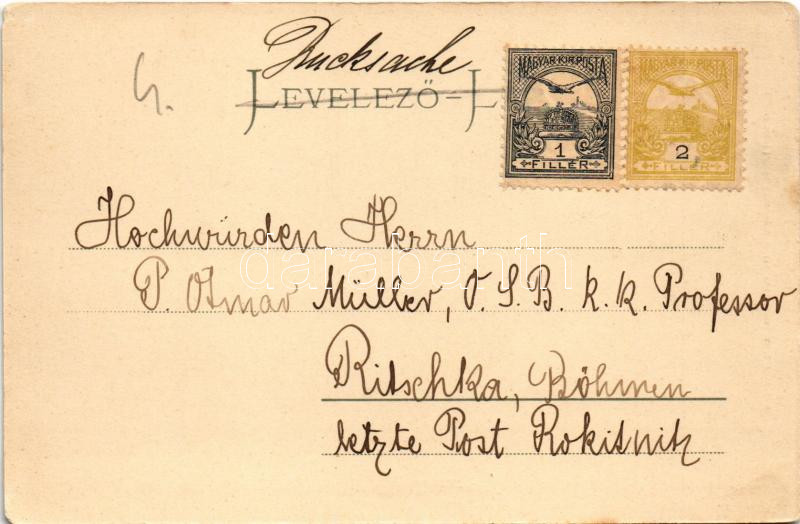 Drucksache
LEVELEZŐ-L
MAGYAR KIR. POSTA
1
FILLÉR
MAGYAR KIR. POSTA
2
FILLÉR
Hochwürden Herrn
P. Otmar Müller, O. S. B. k. k. Professor
darabanth
Ritschka, Böhmen
letzte Post Rokitnitz